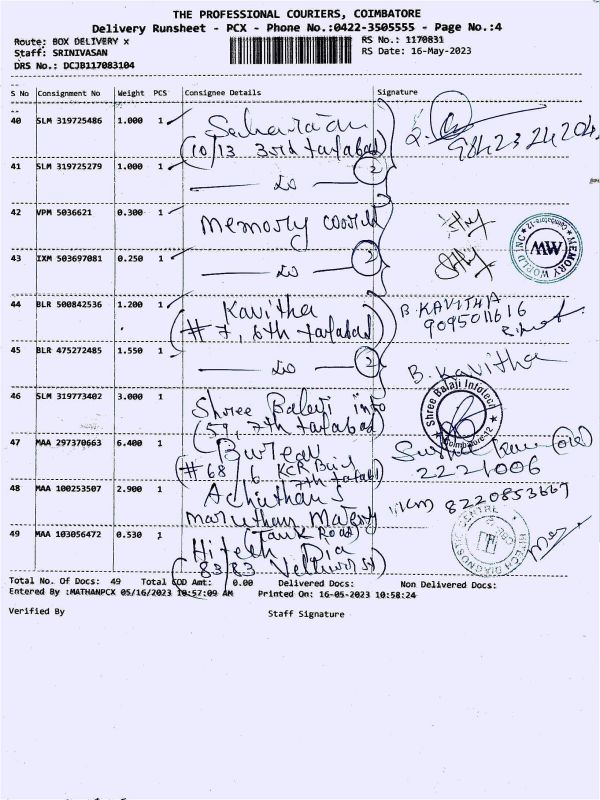 THE PROFESSIONAL COURIERS, COIMBATORE
Delivery Runsheet - PCX - Phone No.:0422-3505555 - Page No.:4
Route: BOX DELIVERY x RS No.: 1170831
Staff: SRINIVASAN RS Date: 16-May-2023
DRS No.: DCJB117083104
S No Consignment No Weight PCS Consignee Details Signature
40 SLM 319725486 1.000 1
(10/13 3rd tatabad) 9842324204
41 SLM 319725279 1.000 1
2
42 VPM 5036621 0.300 1
memory
43 IXM 503697081 0.250 1
MEMORY WORLD INC Coimbatore-12 MW
44 BLR 500842536 1.200 1
Kavitha B. KAVITHA
#7, 6th tatabad 9095011616
45 BLR 475272485 1.550 1
2 B. Kavitha
46 SLM 319773402 3.000 1
Shree Balaji info Shree Balaji Infotech Coimbatore-12
(59, 7th tatabad)
47 MAA 297370663 6.400 1
Bureau
#68/6 KCR 7th tatabad 2221006
48 MAA 100253507 2.900 1
8220853669
marutham
(Tank Road)
49 MAA 103056472 0.530 1
Hitech Dia HITECH DIAGNOSTIC CENTRE
83/83
Total No. Of Docs: 49 Total COD Amt: 0.00 Delivered Docs: Non Delivered Docs:
Entered By :MATHANPCX 05/16/2023 10:57:09 AM Printed On: 16-05-2023 10:58:24
Verified By Staff Signature